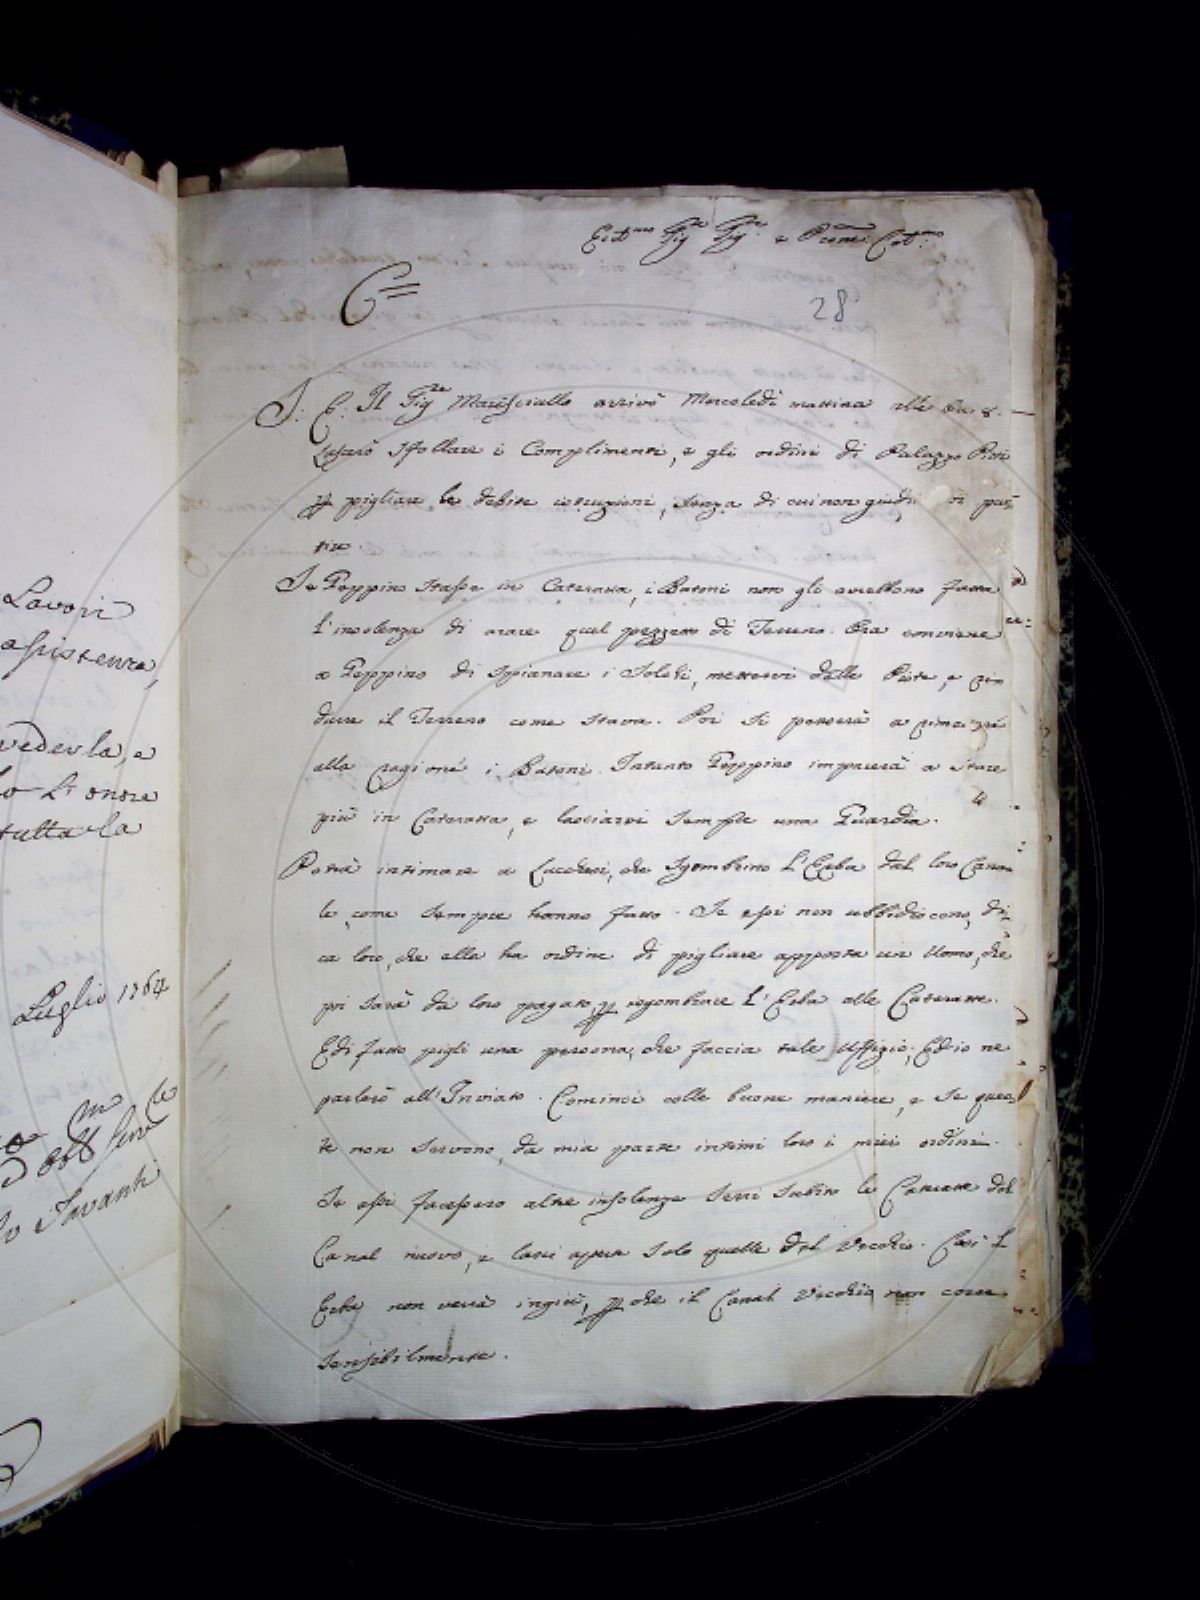 Lavori
assistenza,
vederla, e
lo L'onore
tutta la
Luglio 1764
Savanti
Sig.re Sig.re e
28
S. E. Il Sig.re Maresciallo arrivò Mercoledì mattina alle Ore 8.
Lascerò sfollare i Complimenti, e gli ordini di Palazzo Pitti
p pigliare le debite istruzioni, senza di cui non giudi di par
tire
Se Peppino stasse in Cateratta, i Batoni non gli averebbono fatta
l'insolenza di arare quel pezzetto di Terreno. Ora conviene
a Peppino di spianare i Solchi, mettervi delle Piote, e ri
durre il Terreno come stava. Poi si penserà a
alla ragione i Batoni. Intanto Peppino imparerà a stare
più in Cateratta, e lasciarvi sempre una Guardia.
Potrà intimare a Lucchesi, che sgombrino l'Erba dal loro Cana
le, come sempre hanno fatto. Se essi non ubbidiscono, di
ca loro, che ella ha ordine di pigliare apposta un Uomo, che
poi sarà da loro pagato p isgombrare l'Erba alle Cateratte.
E di fatto pigli una persona, che faccia tale Uffizio; Ed io ne
parlerò all'Inviato. Cominci colle buone maniere, e se ques
te non servono, da mia parte intimi loro i miei ordini.
Se essi facessero altre insolenze serri subito le Cateratte del
Canal nuovo, e lasci aperte solo quelle del Vecchio. Così l
Erba non verrà ingiù, p che il Canal Vecchio non corre
sensibilmente.